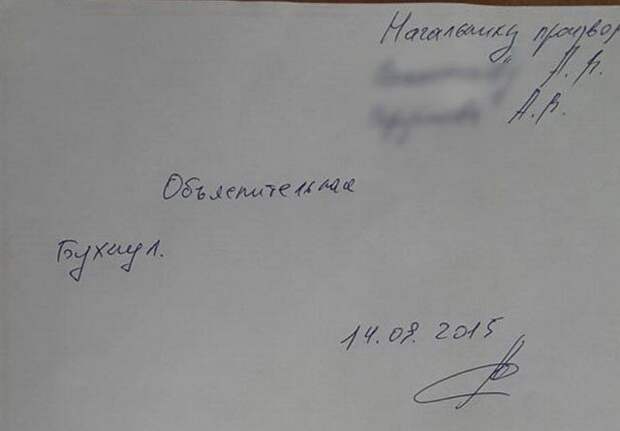 Начальнику произвор
П.В.
А.В.
Объяснительная
Бухнул.
14.08.2015